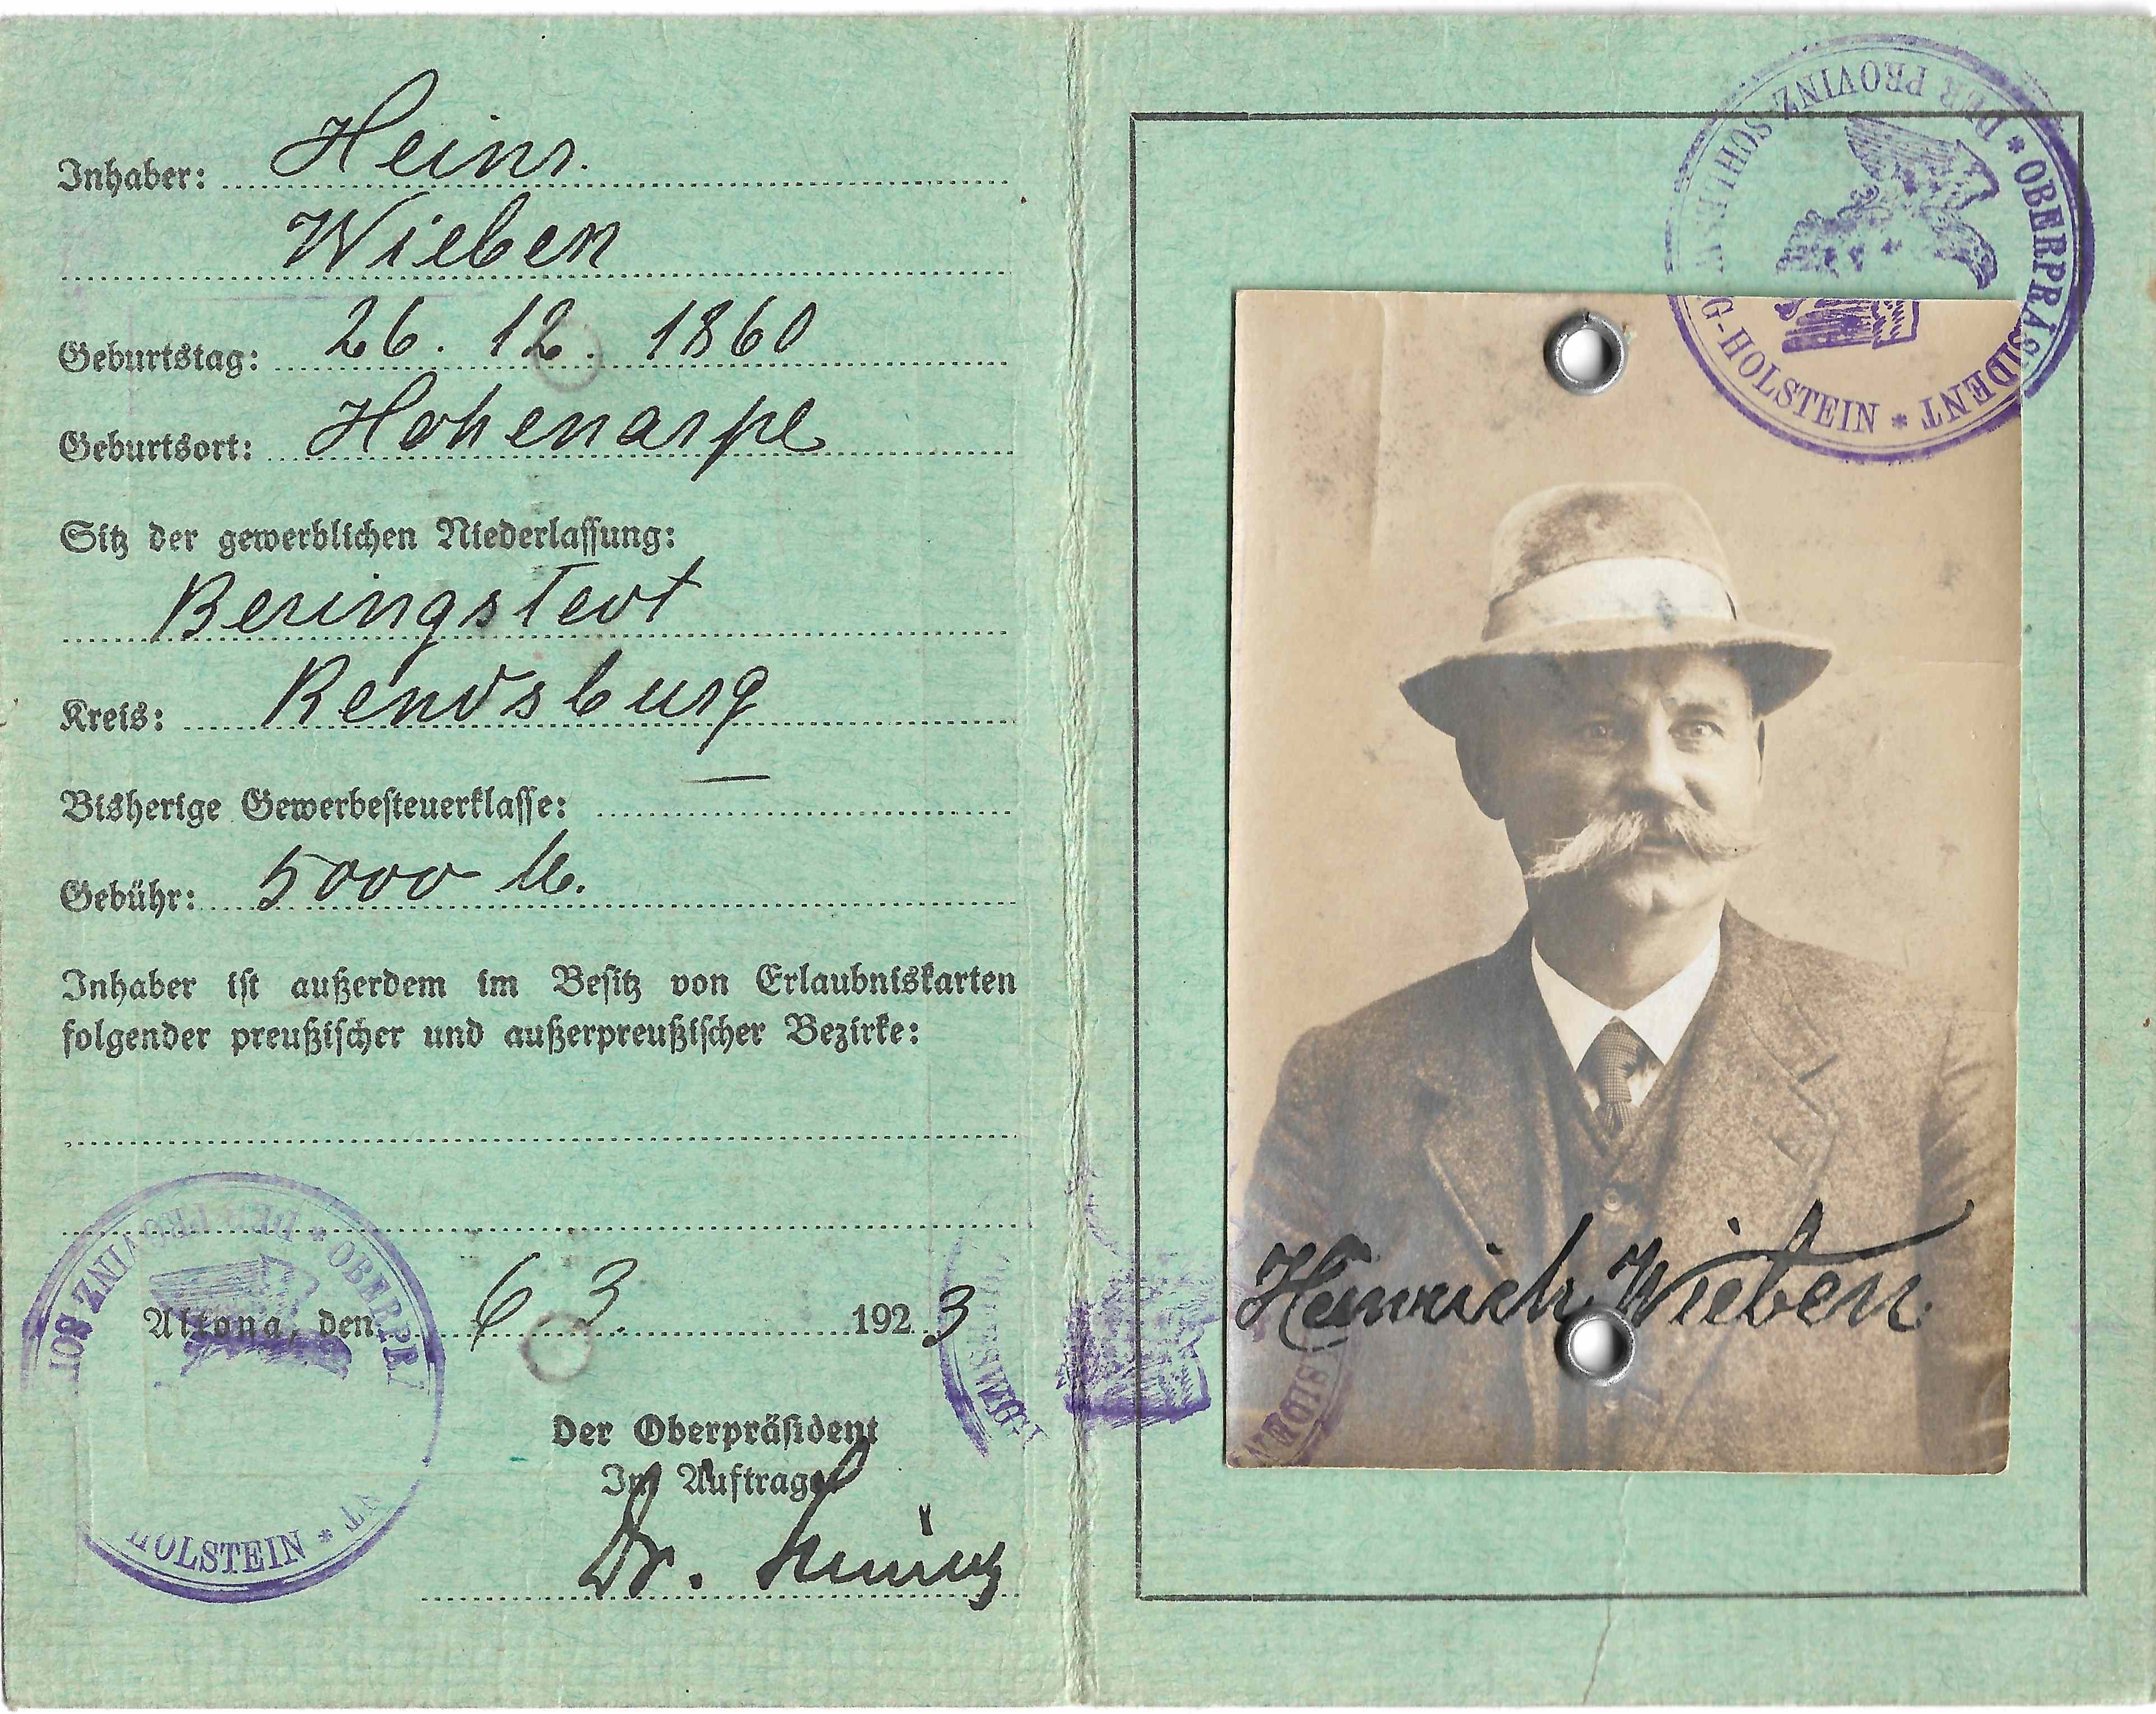 Inhaber: Heinr.
Wieben
Geburtstag: 26. 12. 1860
Geburtsort: Hohenaspe
Sitz der gewerblichen Niederlassung:
Beringstedt
Kreis: Rendsburg
Bisherige Gewerbesteuerklasse: —
Gebühr: 5000 M.
Inhaber ist außerdem im Besitz von Erlaubniskarten
folgender preußischer und außerpreußischer Bezirke:
Altona, den 6 3. 1923
Der Oberpräsident
Im Auftrage
Dr.
* OBERPRÄSIDENT * DER PROVINZ SCHLESWIG-HOLSTEIN
Heinrich Wieben
* OBERPRÄ
DER PROVINZ SCH
HOLSTEIN *
SIDEN